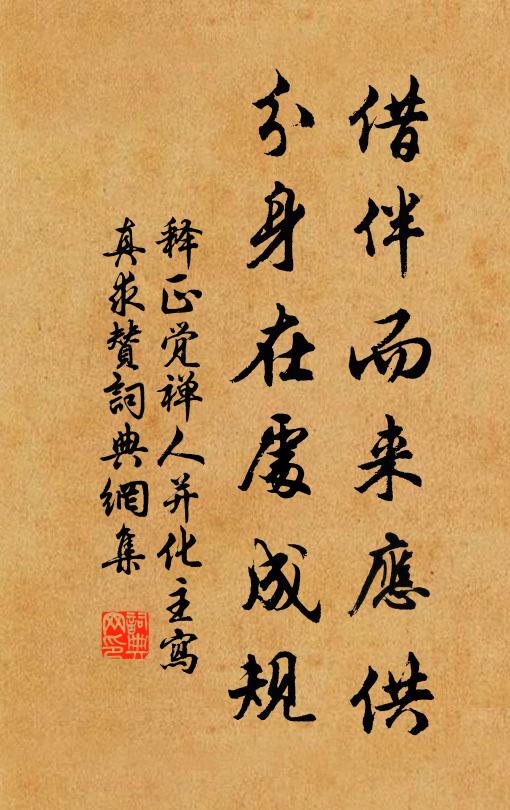 借伴而来應供
分身在處成規
释正觉禅人并化主寫
真求赞詞典網集
詞典
网印